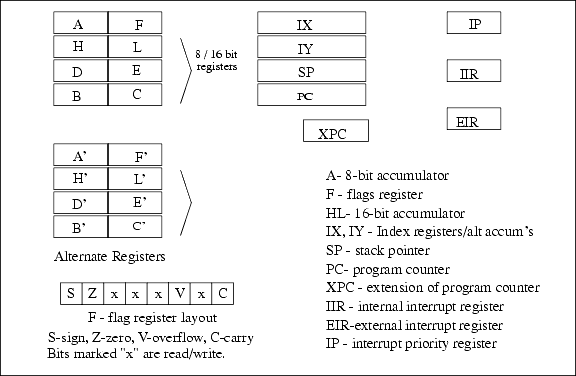 A F
H L
D E
B C
8 / 16 bit
registers
IX
IY
SP
PC
XPC
IP
IIR
EIR
A’ F’
H’ L’
D’ E’
B’ C’
Alternate Registers
S Z x x x V x C
F - flag register layout
S-sign, Z-zero, V-overflow, C-carry
Bits marked "x" are read/write.
A- 8-bit accumulator
F - flags register
HL- 16-bit accumulator
IX, IY - Index registers/alt accum’s
SP - stack pointer
PC- program counter
XPC - extension of program counter
IIR - internal interrupt register
EIR-external interrupt register
IP - interrupt priority register